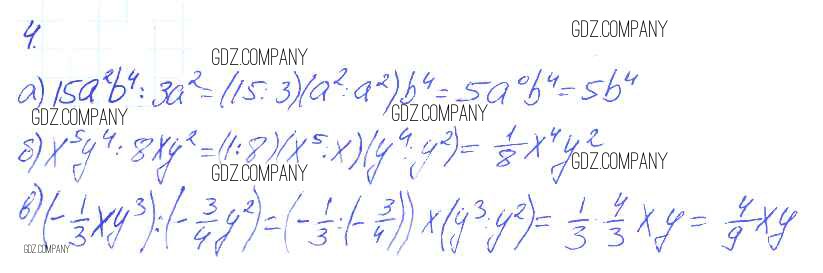 4.
GDZ.COMPANY
GDZ.COMPANY
а) 15a²b⁴ : 3a² = (15 : 3)(a² : a²)b⁴ = 5a⁰b⁴ = 5b⁴
GDZ.COMPANY
GDZ.COMPANY
б) x⁵y⁴ : 8xy² = (1 : 8)(x⁵ : x)(y⁴ : y²) = 1/8 x⁴y²
GDZ.COMPANY
GDZ.COMPANY
в) (-1/3 xy³) : (-3/4 y²) = (-1/3 : (-3/4)) x(y³ : y²) = 1/3 · 4/3 xy = 4/9 xy
GDZ.COMPANY